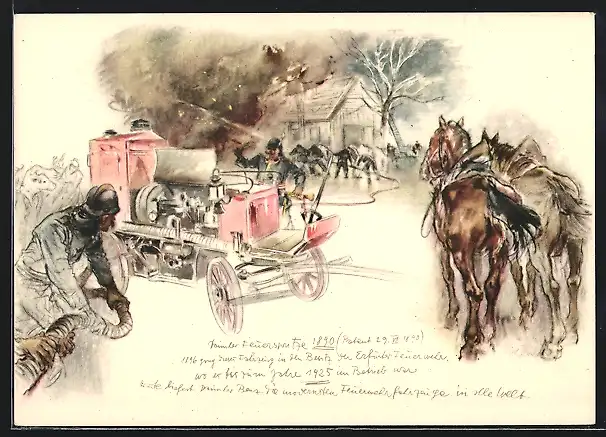 Daimler Feuerspritze 1890 (Patent 29. VII 1890)
1896 ging das Fahrzeug in den Besitz der Erfurter Feuerwehr,
wo er bis zum Jahre 1925 im Betrieb war
Heute liefert Daimler Benz die modernsten Feuerwehrfahrzeuge in alle Welt.